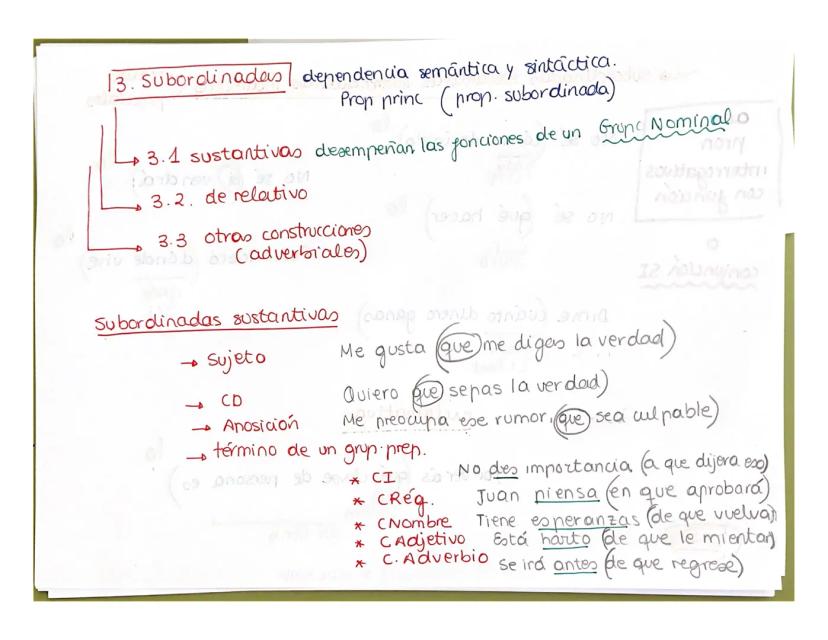 3. Subordinadas dependencia semántica y sintáctica.
Prop princ (prop. subordinada)
3.1 sustantivas desempeñan las funciones de un Grupo Nominal
3.2. de relativo
3.3 otras construcciones
(adverbiales)
Subordinadas sustantivas
→ Sujeto Me gusta (que me digas la verdad)
→ CD Quiero (que sepas la verdad)
→ Aposición Me preocupa ese rumor, (que sea culpable)
→ término de un grup. prep.
* CI No des importancia (a que dijera eso)
* CRég. Juan piensa (en que aprobará)
* CNombre Tiene esperanzas (de que vuelva)
* CAdjetivo Está harto (de que le mientan)
* C. Adverbio Se irá antes (de que regrese)